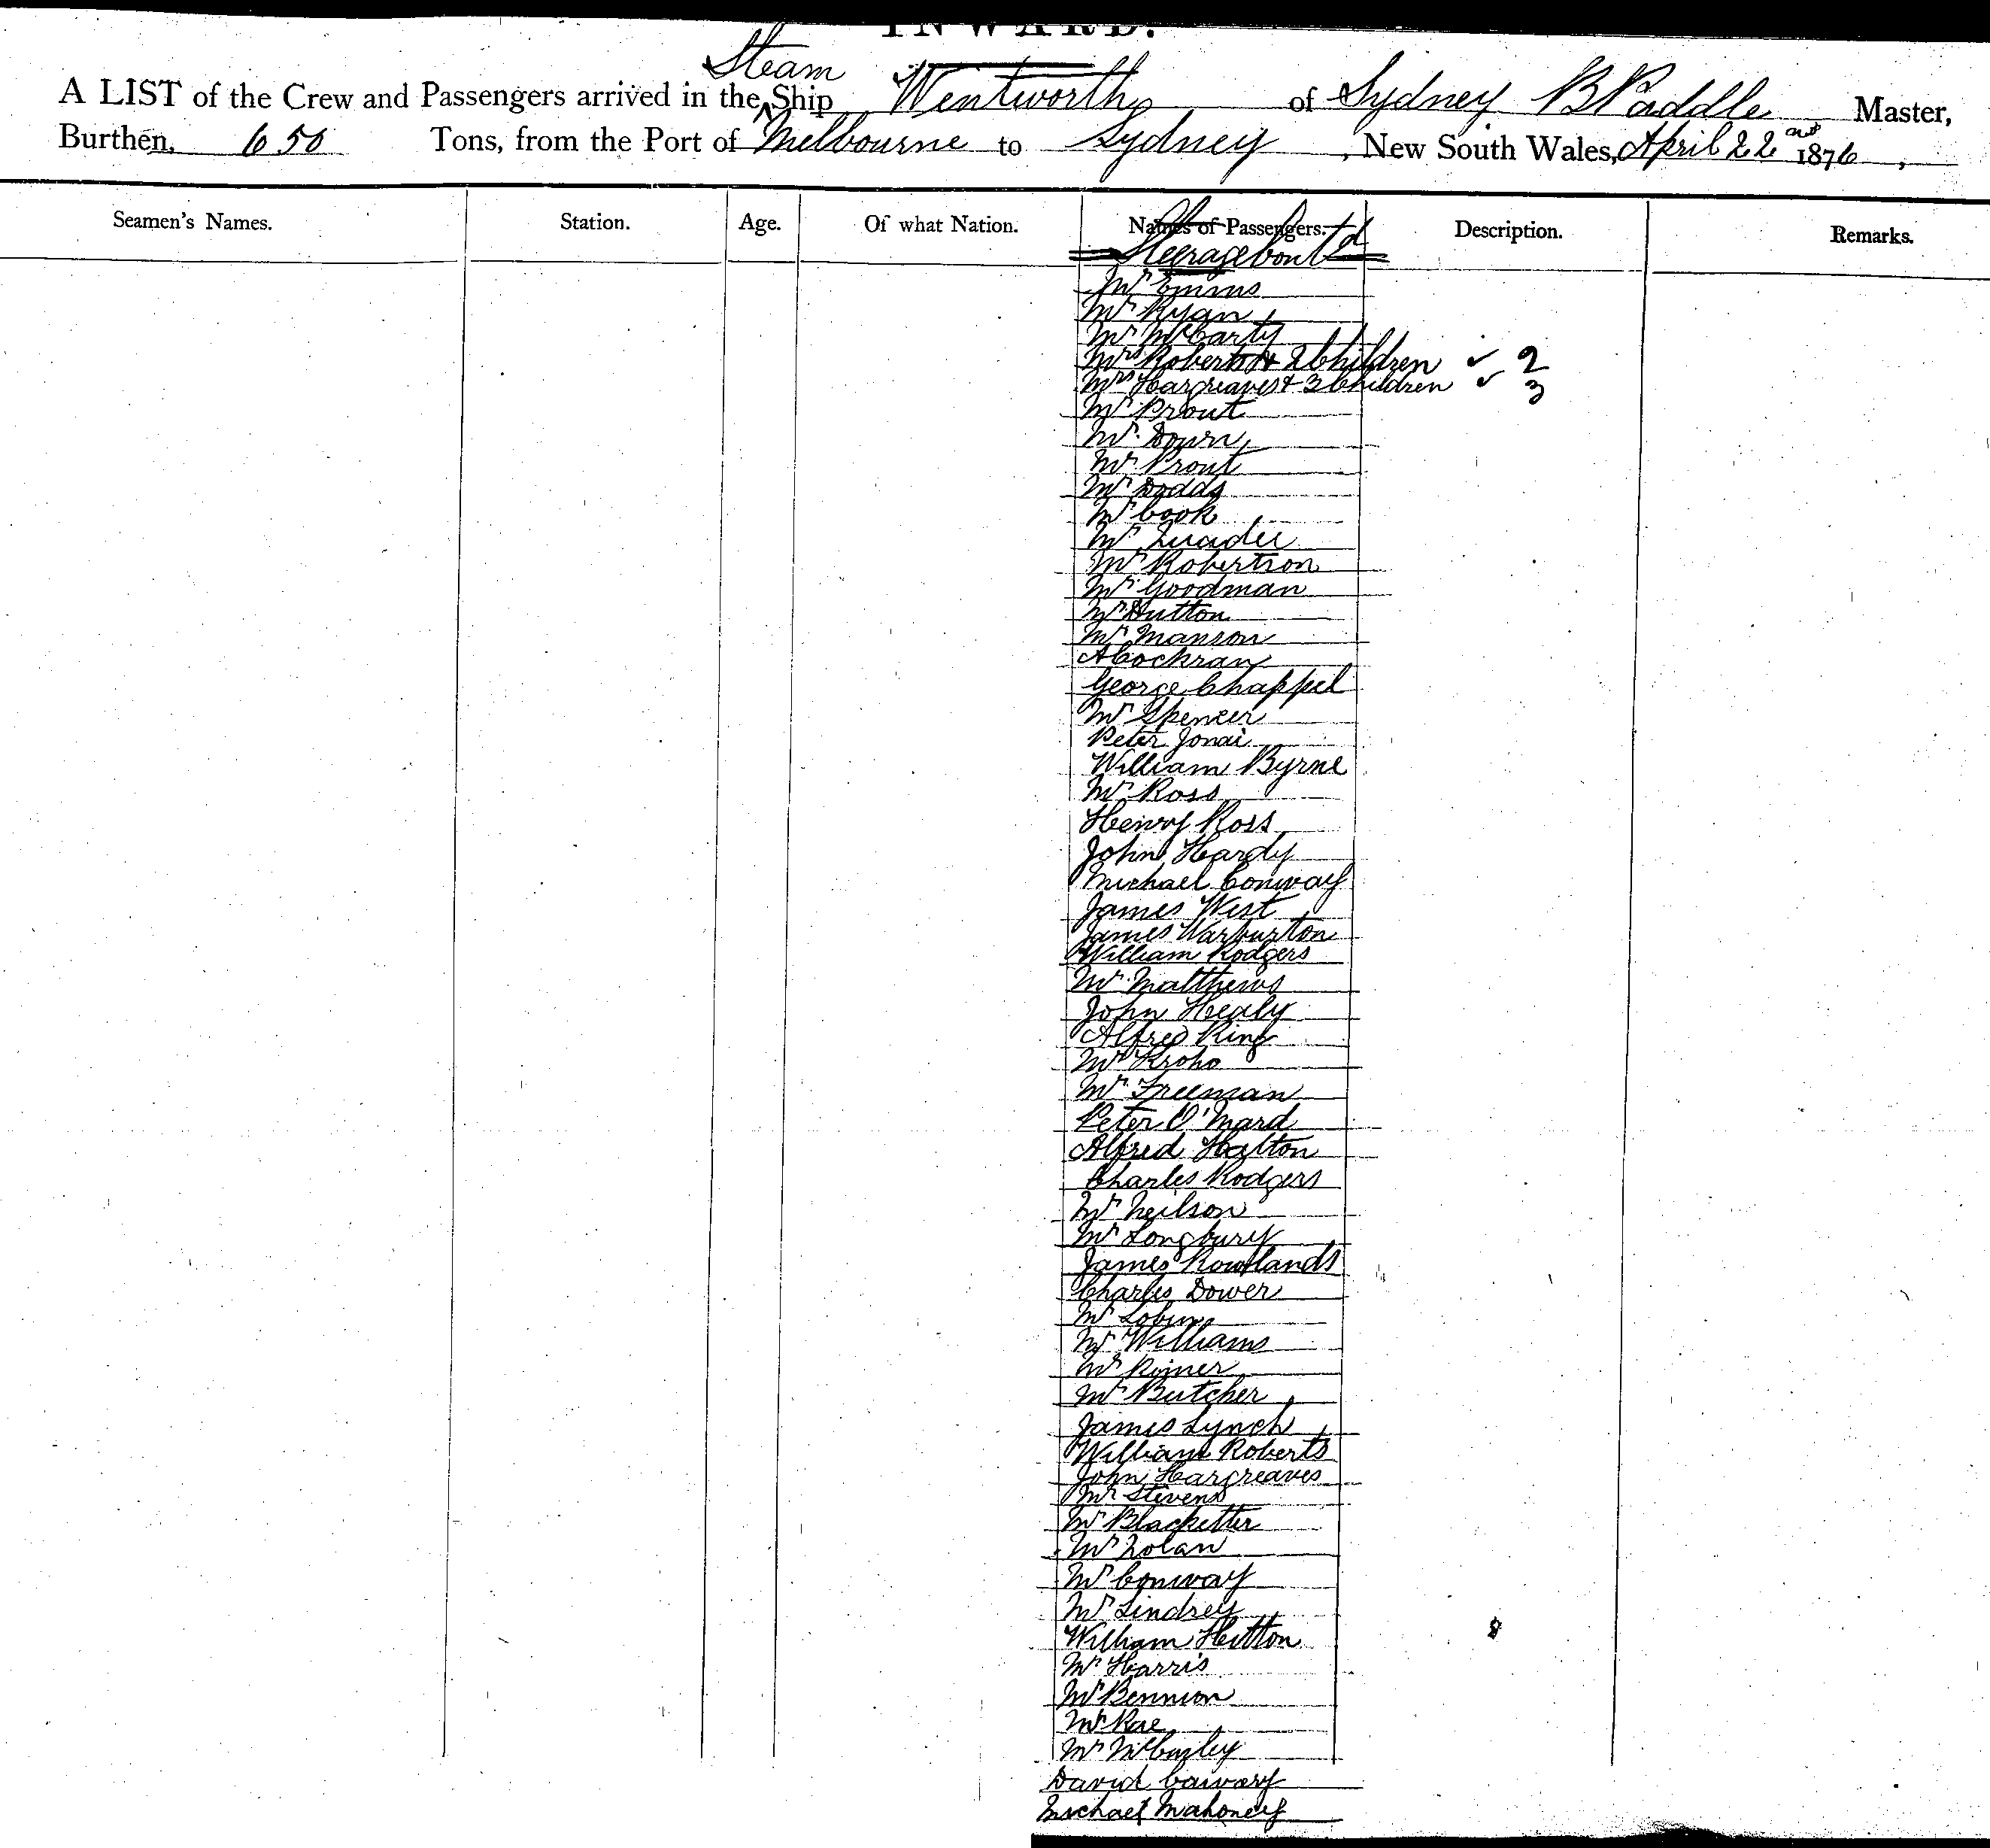 INWARD.
Steam
A LIST of the Crew and Passengers arrived in the ^ Ship Wentworth of Sydney B Paddle Master,
Burthen, 650 Tons, from the Port of Melbourne to Sydney, New South Wales, April 22nd 1876,
Seamen's Names. Station. Age. Of what Nation. Names of Passengers. Description. Remarks.
Steerage Contd
Mr Emms
Mr Ryan
Mr McCarty
Mrs Roberts & 2 Children ✓ 2
Mrs Hargreaves & 3 Children ✓ 3
Mr Prout
Mr Down
Mr Prout
Mr Dodds
Mr Cook
Mr
Mr Robertson
Mr Goodman
Mr Hutton
Mr Manson
A Cockran
George Chappel
Mr Spencer
Peter Jonai
William Byrne
Mr Ross
Henry Ross
John Hardy
Michael Conway
James West
James Warburton
William Rodgers
Mr Matthews
John Healy
Alfred King
Mr Kroho
Mr Freeman
Peter O'Mard
Alfred Halton
Charles Rodgers
Mr Neilson
Mr Longbury
James Rowlands
Charles Dower
Mr
Mr Williams
Mr Rimer
Mr Butcher
James Lynch
William Roberts
John Hargreaves
Mr Stevens
Mr Blacketter
Mr Nolan
Mr Conway
Mr Lindsey
William Hutton
Mr Harris
Mr Bennion
Mr Rae
Mr McCurley
David
Michael Mahoney